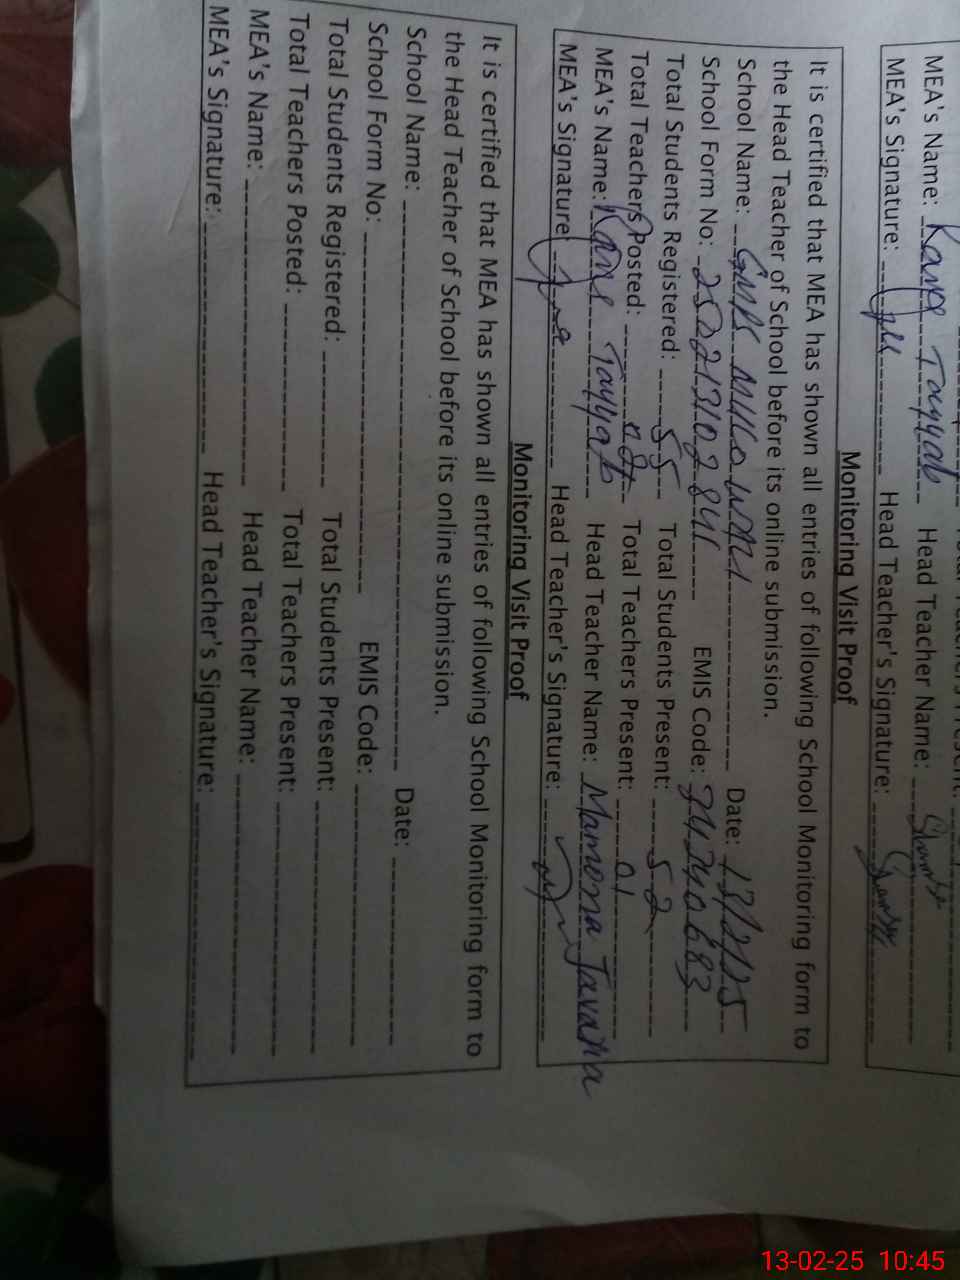 MEA's Name: Rane Tayyab Head Teacher Name:
MEA's Signature: Head Teacher's Signature:
Monitoring Visit Proof
It is certified that MEA has shown all entries of following School Monitoring form to
the Head Teacher of School before its online submission.
School Name: GMPS Date: 13/2/25
School Form No: EMIS Code:
Total Students Registered: 55 Total Students Present: 52
Total Teachers Posted: 02 Total Teachers Present: 01
MEA's Name: Rane Tayyab Head Teacher Name: Mamona
MEA's Signature Head Teacher's Signature:
Monitoring Visit Proof
It is certified that MEA has shown all entries of following School Monitoring form to
the Head Teacher of School before its online submission.
School Name: Date:
School Form No: EMIS Code:
Total Students Registered: Total Students Present:
Total Teachers Posted: Total Teachers Present:
MEA's Name: Head Teacher Name:
MEA's Signature: Head Teacher's Signature:
13-02-25 10:45